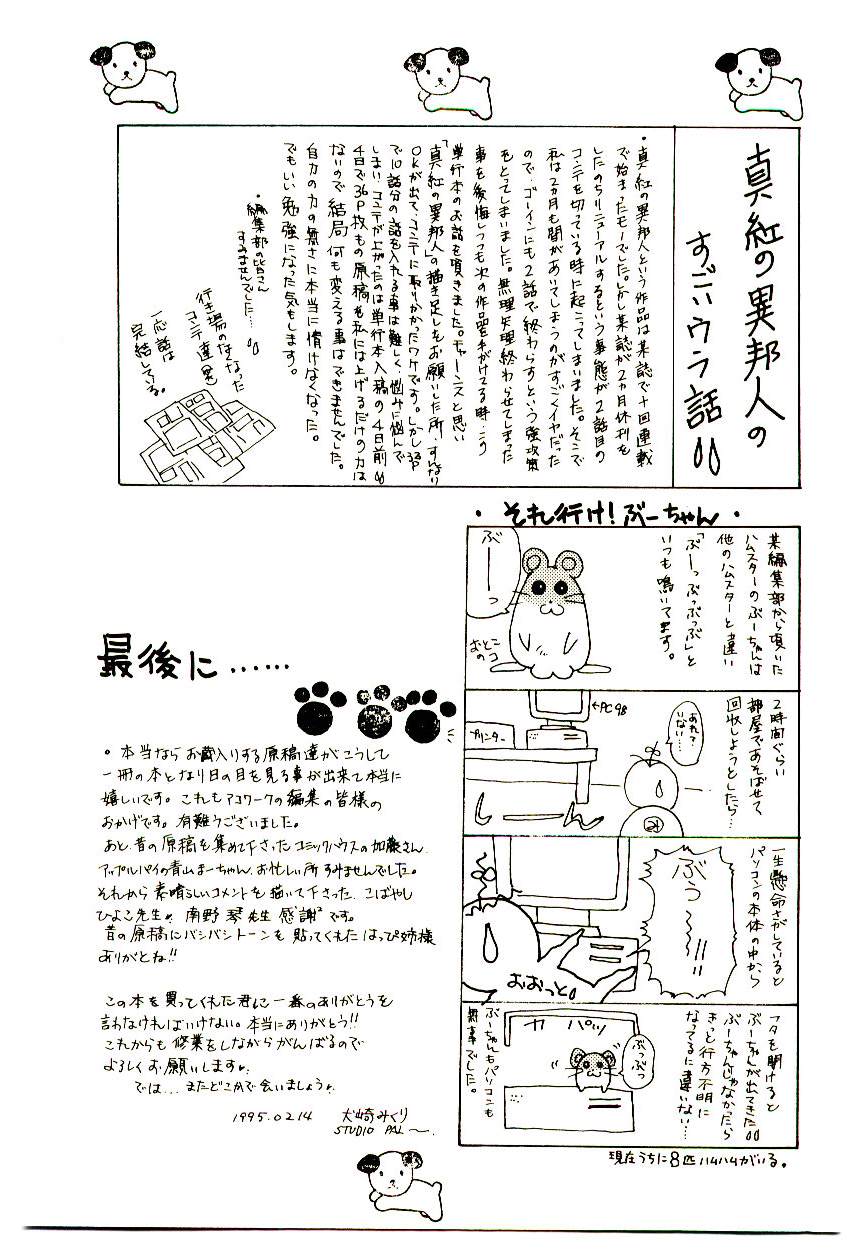 真紅の異邦人の
すごいウラ話
・真紅の異邦人という作品は某誌で十回連載
で始まったモノでした。しかし某誌が2ヵ月休刊を
したのちリニューアルするという事態が2話目の
コンテを切っている時に起こってしまいました。そこで
私は2ヵ月も間があいてしまうのがすごくイヤだった
ので、ゴーインにも2話で終わらすという強攻策
をとってしまいました。無理矢理終わらせてしまった
事を後悔しつつも次の作品を手がけてる時、この
単行本のお話を頂きました。チャーンスと思い
「真紅の異邦人」の描き足しをお願いした所、すんなり
OKが出て、コンテに取りかかったワケです。しかし33P
で10話分の話を入れる事は難しく、悩みに悩んで
しまい、コンテが上がったのは単行本入稿の4日前
4日で36P枚もの原稿を私には上げるだけの力は
ないので結局何も変える事はできませんでした。
自分の力の無さに本当に情けなくなった。
でもいい勉強になった気もします。
・編集部の皆さん
すみませんでした…
行き場のなくなった
コンテ達
一応話は
完結している。
・それ行け!ぶーちゃん・
某編集部から頂いた
ハムスターのぶーちゃんは
他のハムスターと違い
「ぶーっぶっぶっぶ」と
いつも鳴いてます。
ぶーっ
おとこ
のコ
2時間ぐらい
部屋であそばせて
回収しようとしたら…
←PC98
プリンター
あれ?
いない…
しーん
一生懸命さがしていると
パソコンの本体の中から
ぶぅ〜!!
おおっと
フタを開けると
ぶーちゃんが出てきた
ぶーちゃんじゃなかったら
きっと行方不明に
なってるに違いない…
カパッ
ぶっぶっ
ぶーちゃんもパソコンも
無事でした。
現在うちに8匹ハムハムがいる。
最後に……
・本当ならお蔵入りする原稿達がこうして
一冊の本となり日の目を見る事が出来て本当に
嬉しいです。これもアコワークの編集の皆様の
おかげです。有難うございました。
あと、昔の原稿を集めて下さったコミックハウスの加藤さん
アップルパイの青山まーちゃん、お忙しい所すみませんでした。
それから素晴らしいコメントを描いて下さった、こばやし
ひよこ先生、南野琴先生感謝²です。
昔の原稿にバシバシトーンを貼ってくれたはっぴ姉様
ありがとね!!
この本を買ってくれた君に一番のありがとうを
言わなければいけない。本当にありがとう!!
これからも修業をしながらがんばるので
よろしくお願いします。
では…またどこかで会いましょう。
1995.02.14 犬崎みくり
STUDIO PAL〜.